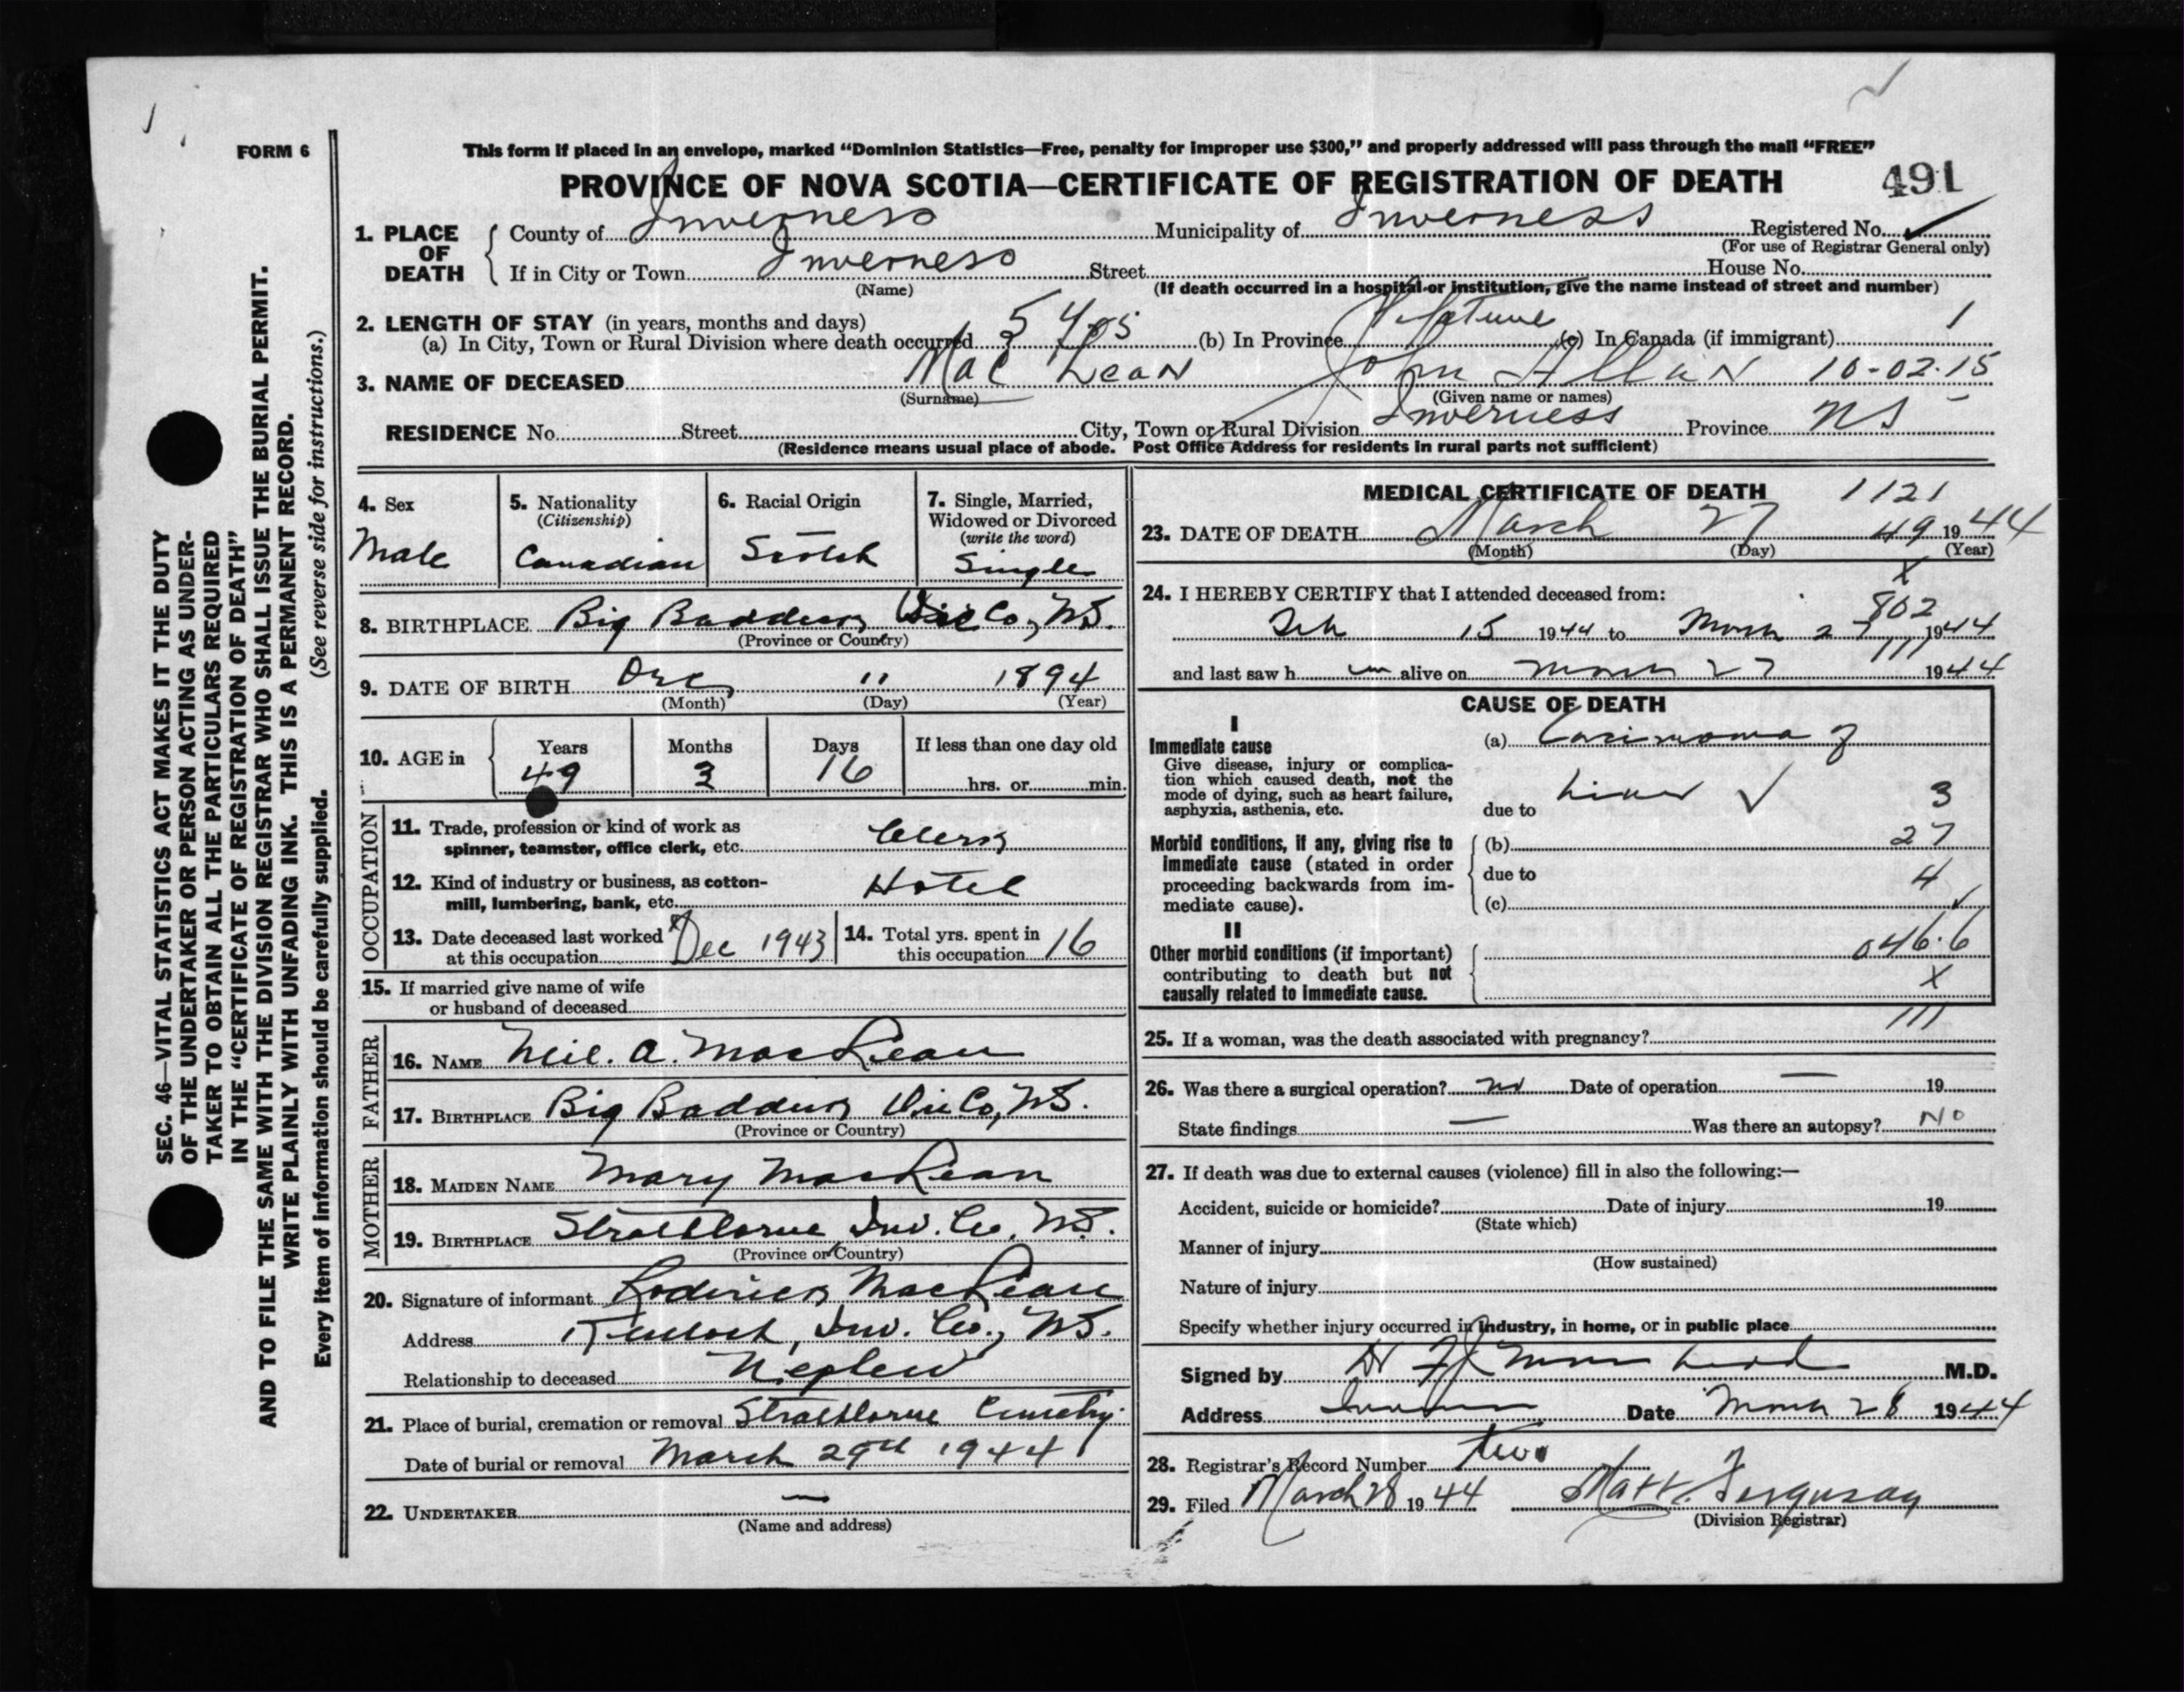 FORM 6
This form if placed in an envelope, marked “Dominion Statistics—Free, penalty for improper use $300,” and properly addressed will pass through the mail “FREE”
PROVINCE OF NOVA SCOTIA—CERTIFICATE OF REGISTRATION OF DEATH 491
1. PLACE OF DEATH
County of Inverness Municipality of Inverness Registered No.
(For use of Registrar General only)
If in City or Town Inverness Street House No.
(Name) (If death occurred in a hospital or institution, give the name instead of street and number)
2. LENGTH OF STAY (in years, months and days)
(a) In City, Town or Rural Division where death occurred 5 yrs (b) In Province Lifetime (c) In Canada (if immigrant) 1
3. NAME OF DECEASED MacLean John Allan 10-02-15
(Surname) (Given name or names)
RESIDENCE No. Street City, Town or Rural Division Inverness Province NS
(Residence means usual place of abode. Post Office Address for residents in rural parts not sufficient)
4. Sex
Male
5. Nationality
(Citizenship)
Canadian
6. Racial Origin
Scotch
7. Single, Married, Widowed or Divorced
(write the word)
Single
8. BIRTHPLACE Big Baddeck Vic Co, N.S.
(Province or Country)
9. DATE OF BIRTH Dec, 11 1894
(Month) (Day) (Year)
10. AGE in Years Months Days If less than one day old
49 3 16 hrs. or min.
OCCUPATION
11. Trade, profession or kind of work as
spinner, teamster, office clerk, etc. Clerk
12. Kind of industry or business, as cotton-
mill, lumbering, bank, etc. Hotel
13. Date deceased last worked
at this occupation Dec 1943
14. Total yrs. spent in
this occupation 16
15. If married give name of wife
or husband of deceased
FATHER
16. NAME Neil. A. MacLean
17. BIRTHPLACE Big Baddeck Vic Co, N.S.
(Province or Country)
MOTHER
18. MAIDEN NAME Mary MacLean
19. BIRTHPLACE Strathlorne Inv. Co, N.S.
(Province or Country)
20. Signature of informant Roderick MacLean
Address Kenloch, Inv. Co., N.S.
Relationship to deceased Nephew
21. Place of burial, cremation or removal Strathlorne Cemetry
Date of burial or removal March 29th 1944
22. UNDERTAKER —
(Name and address)
MEDICAL CERTIFICATE OF DEATH 1121
23. DATE OF DEATH March 27 49 1944
(Month) (Day) (Year)
24. I HEREBY CERTIFY that I attended deceased from:
X
802
Feb 15 1944 to March 27 1944
111
and last saw h im alive on March 27 1944
CAUSE OF DEATH
I
Immediate cause
Give disease, injury or complica-
tion which caused death, not the
mode of dying, such as heart failure,
asphyxia, asthenia, etc.
(a) Carcinoma of
due to Liver ✓ 3
Morbid conditions, if any, giving rise to
immediate cause (stated in order
proceeding backwards from im-
mediate cause).
(b) 27
due to 4
(c) ✓
II
Other morbid conditions (if important)
contributing to death but not
causally related to immediate cause.
046.6
X
111
25. If a woman, was the death associated with pregnancy?
26. Was there a surgical operation? No Date of operation — 19
State findings — Was there an autopsy? No
27. If death was due to external causes (violence) fill in also the following:—
Accident, suicide or homicide? Date of injury 19
(State which)
Manner of injury
(How sustained)
Nature of injury
Specify whether injury occurred in industry, in home, or in public place
Signed by M.D.
Address Date March 28 1944
28. Registrar's Record Number Two
29. Filed March 28 1944 Matt. Ferguson
(Division Registrar)
SEC. 46—VITAL STATISTICS ACT MAKES IT THE DUTY
OF THE UNDERTAKER OR PERSON ACTING AS UNDER-
TAKER TO OBTAIN ALL THE PARTICULARS REQUIRED
IN THE “CERTIFICATE OF REGISTRATION OF DEATH”
AND TO FILE THE SAME WITH THE DIVISION REGISTRAR WHO SHALL ISSUE THE BURIAL PERMIT.
WRITE PLAINLY WITH UNFADING INK. THIS IS A PERMANENT RECORD.
Every item of information should be carefully supplied. (See reverse side for instructions.)